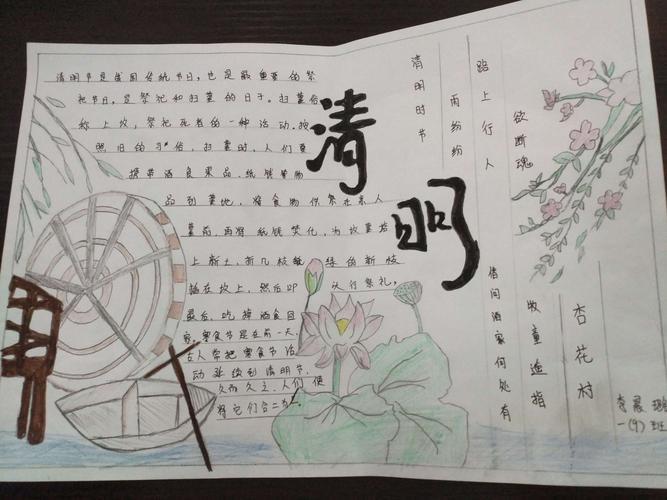 清明节是我国传统节日，也是最重要的祭
祀节日，是祭祀和扫墓的日子。扫墓俗
称上坟，祭祀死者的一种活动。按
照旧的习俗，扫墓时，人们要
携带酒食果品、纸钱等物
品到墓地，将食物供祭在亲人
墓前，再将纸钱焚化，为坟墓培
上新土，折几枝嫩绿的新枝
插在坟上，然后叩头行祭礼，
最后，吃掉酒食回
家。寒食节是在前一天，
古人常把寒食节活
动延续到清明节，
久而久之，人们便
将它们合二为一。
清明
清明时节
雨纷纷
路上行人
欲断魂
借问酒家何处有
牧童遥指
杏花村
李
一(9)班